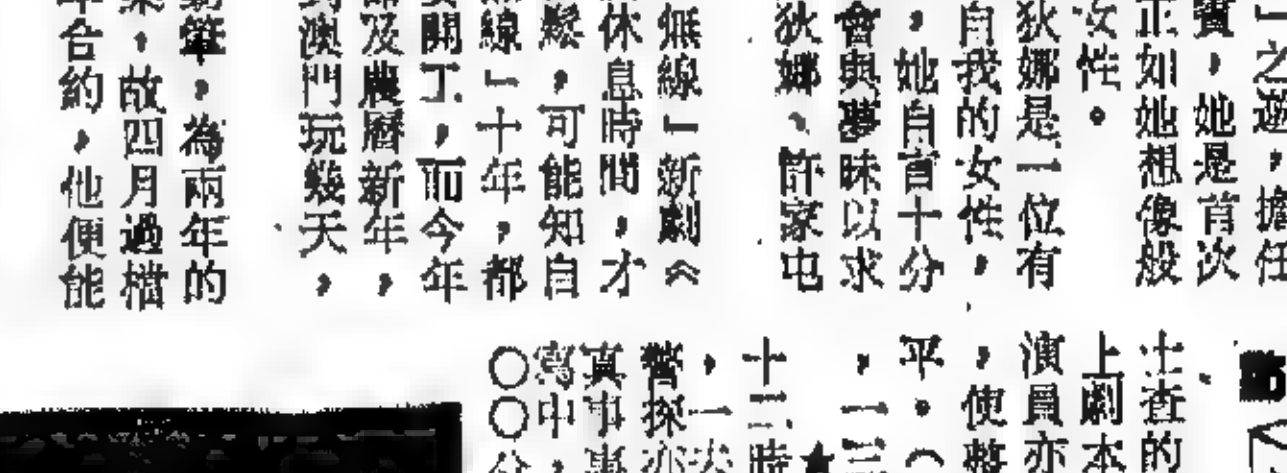 」之遊，擔任
賓，她是首次
正如她想像般
女性。
狄娜是一位有
自我的女性，
，她自言十分
會與夢昧以求
狄娜、許家屯
無線」新劇《
休息時間，才
鬆，可能知自
線」十年，都
開工，而今年
及農曆新年，
澳門玩幾天，
肇，為兩年的
，故四月過檔
年合約，他便能
查的
上劇本
演員亦
，使整
平。（
，一三
十二時★
，一
警探亦
真事
寓中，
〇〇分